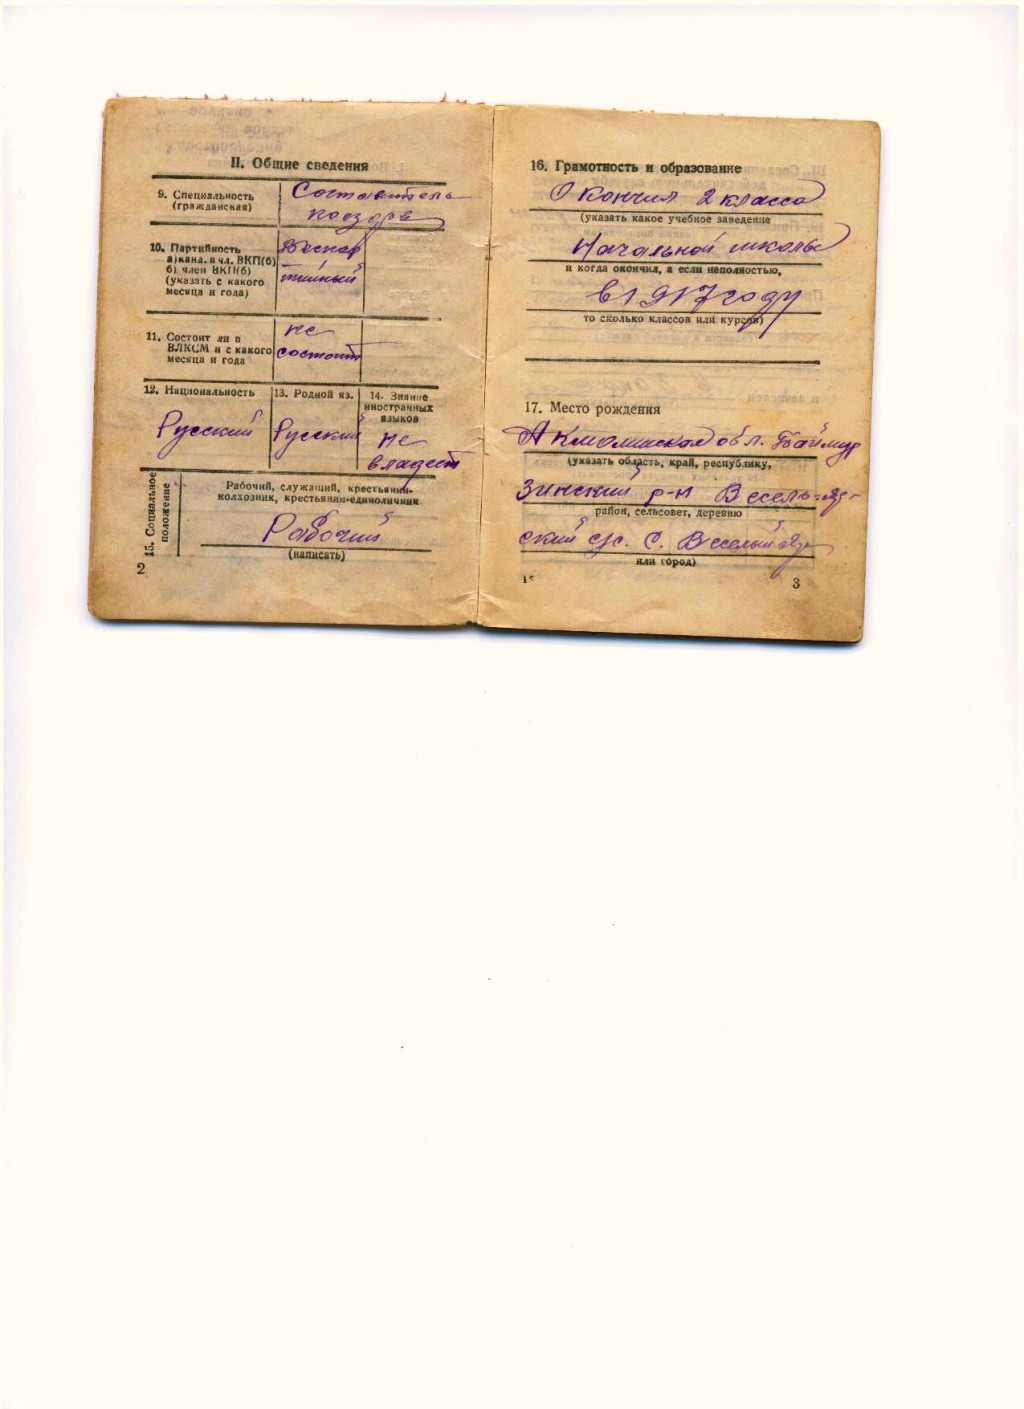 II. Общие сведения
9. Специальность
(гражданская)
Составитель
поездов
10. Партийность
а) канд. в чл. ВКП(б)
б) член ВКП(б)
(указать с какого
месяца и года)
Беспар
тийный
11. Состоит ли в
ВЛКСМ и с какого
месяца и года
не
состоит
12. Национальность
Русский
13. Родной яз.
Русский
14. Знание
иностранных
языков
не
владеет
15. Социальное
положение
Рабочий, служащий, крестьянин-
колхозник, крестьянин-единоличник
Рабочий
(написать)
2
16. Грамотность и образование
Окончил 2 класса
(указать какое учебное заведение
Начальной школы
и когда окончил, а если неполностью,
в 1917 году
то сколько классов или курсов)
17. Место рождения
Акмолинская обл. Баймур
(указать область, край, республику,
зинский р-н Веселы-
район, сельсовет, деревню
ский с/с. С. Веселый
или город)
3